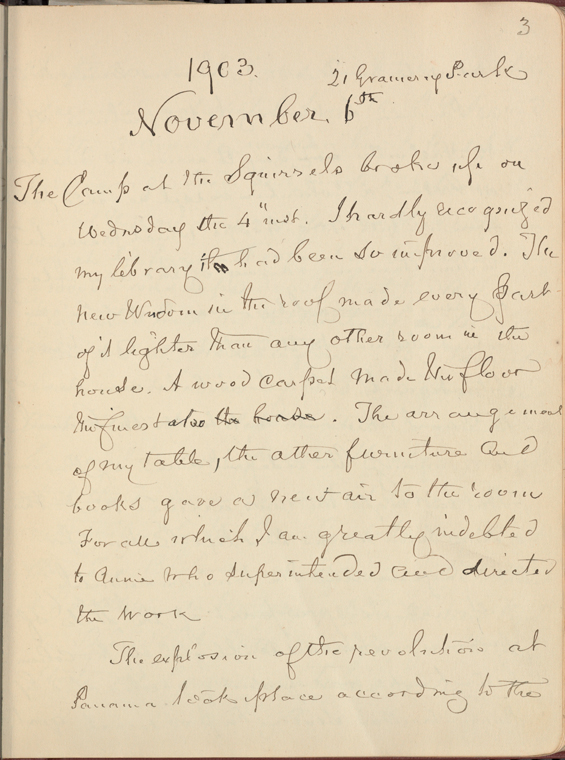 3
1903.
21 Gramercy Park
November 6th
The Camp at the Squirrels broke up on
Wednesday the 4" inst. I hardly recognized
my library it had been so improved. The
new Window in the roof made every part
of it lighter than any other room in the
house. A wood carpet made the floor
the finest also the house. The arrangement
of my table, the other furniture and
books gave a new air to the room
For all which I am greatly indebted
to Annie who superintended and directed
the work
The explosion of the revolution at
Panama took place according to the